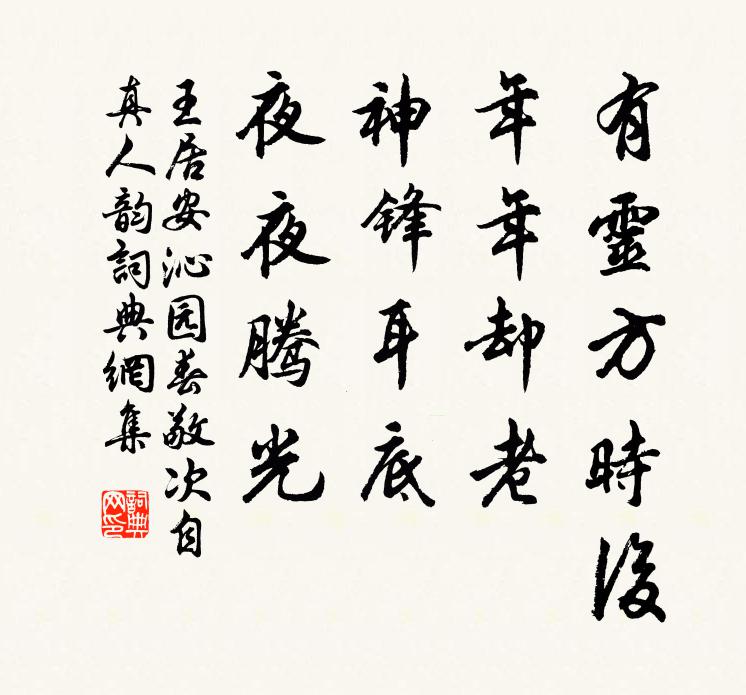 有靈方時後
年年却老
神鋒耳底
夜夜騰光
王居安沁园春敬次自
真人韵詞典網集
詞典
网印